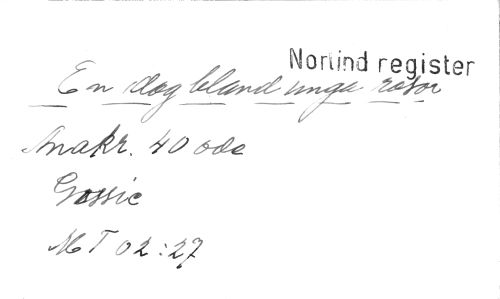 Norlind register
En dag bland unga rosor
Anakr. 40 ode
Gossic
MT 02:27